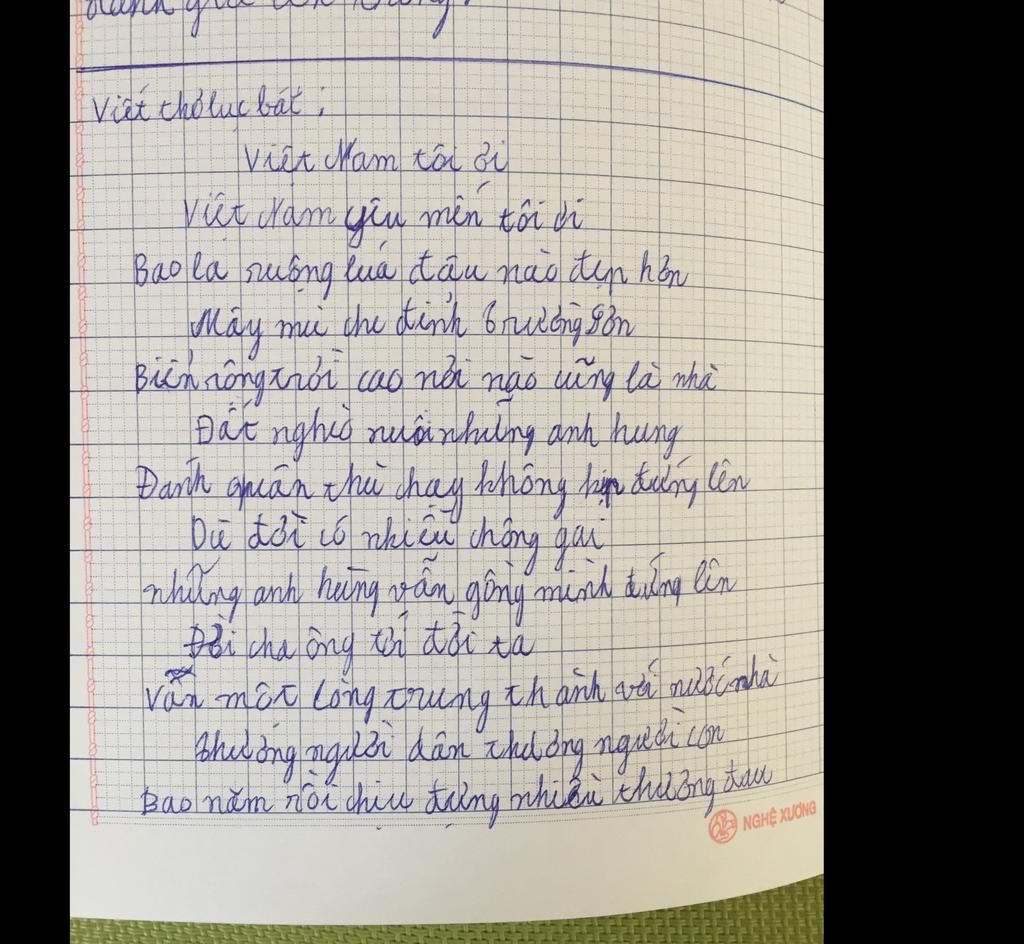 Viết thơ lục bát :
Việt Nam tôi ơi
Việt Nam yêu mến tôi ơi
Bao la ruộng luá đâu nào đẹp hơn
Mây mù che đỉnh trường sơn
Biển rông trời cao nơi nào cũng là nhà
Đất nghèo nuôi những anh hung
Đanh quân thù chạy không kịp đứng lên
Dù đời có nhiều chông gai
những anh hùng vẫn gồng mình đứng lên
Đời cha ông tới đời ta
Vẫn môt lòng trung thành với nước nhà
thương người dân thương người con
Bao năm rồi chịu đựng nhiều thương đau
NGHỆ XƯƠNG